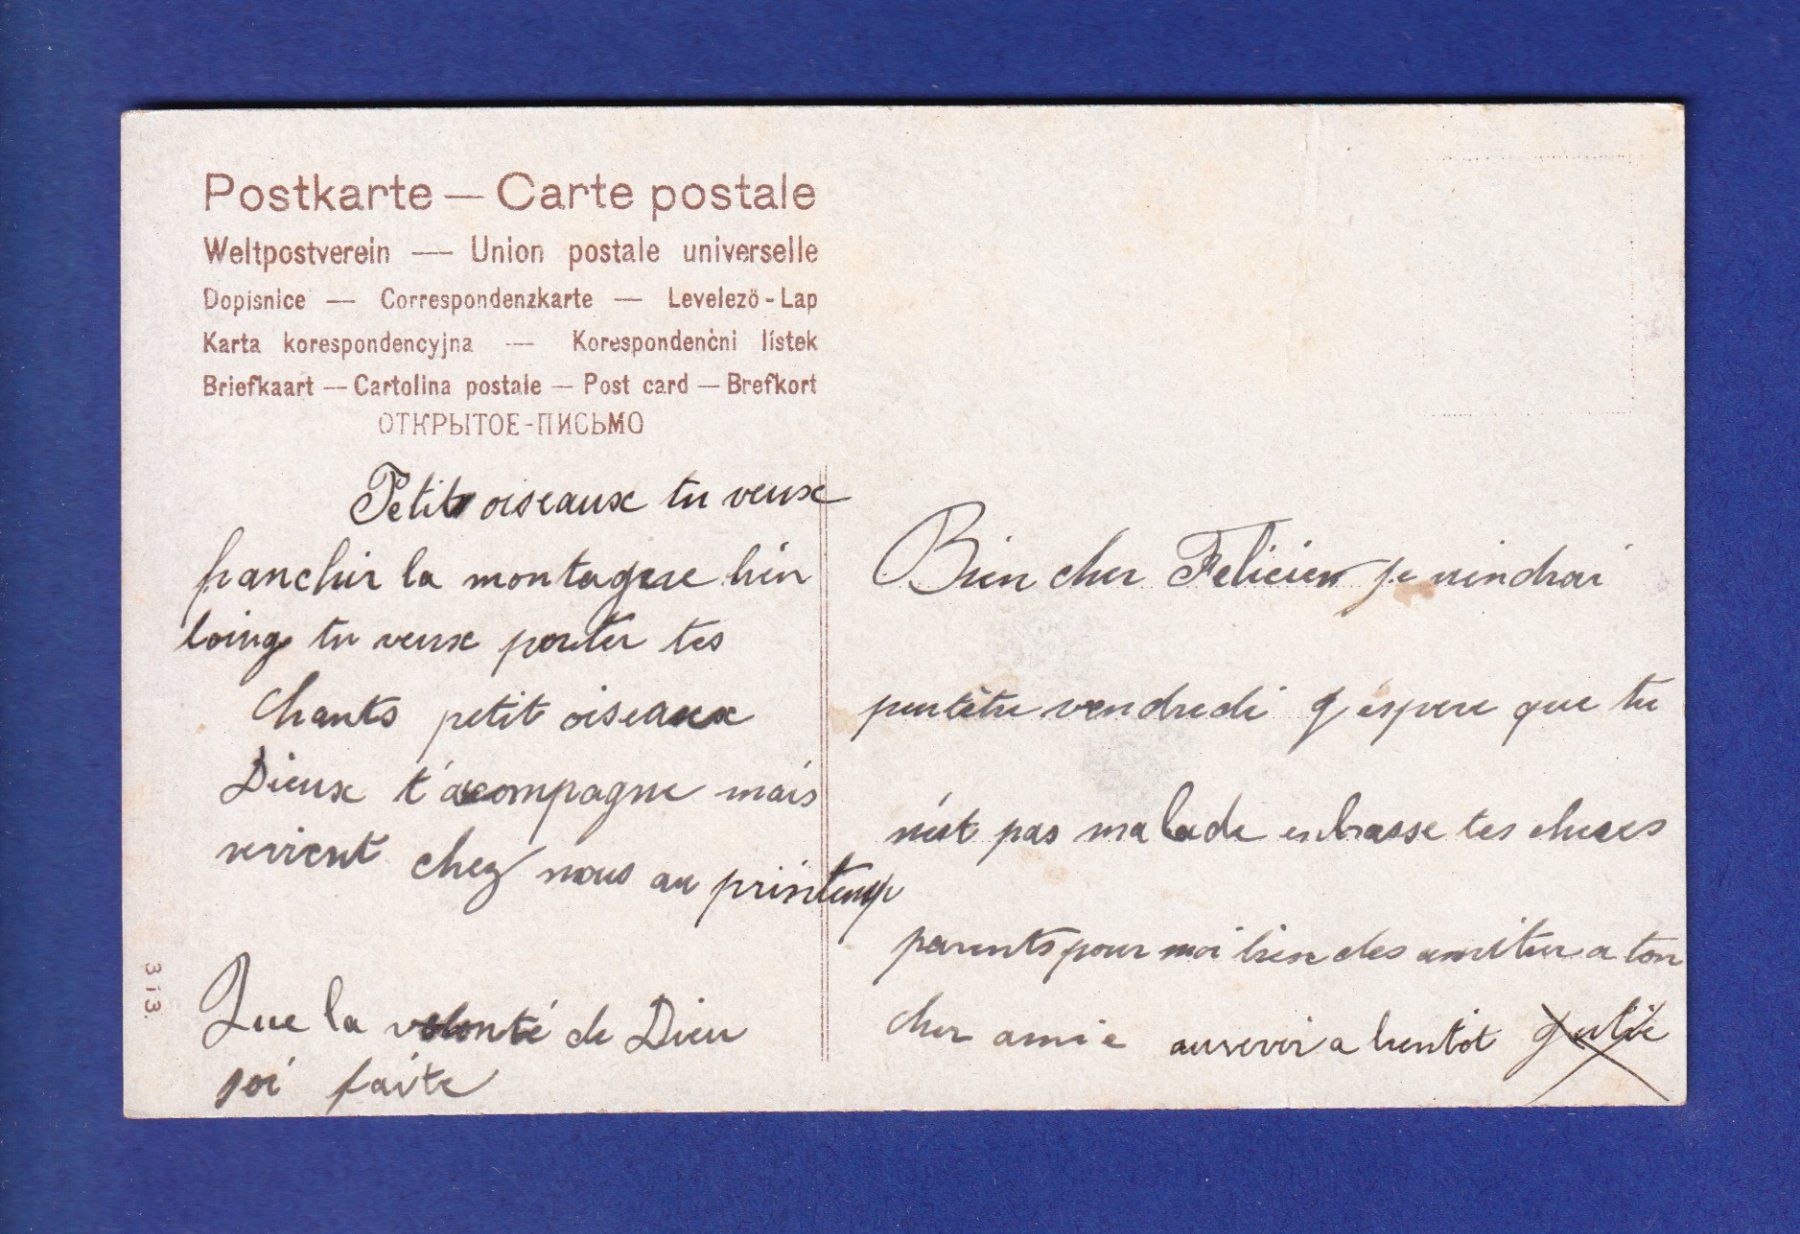 Postkarte — Carte postale
Weltpostverein — Union postale universelle
Dopisnice — Correspondenzkarte — Levelező-Lap
Karta korespondencyjna — Korespondenčni lístek
Briefkaart — Cartolina postale — Post card — Brefkort
ОТКРЫТОЕ-ПИСЬМО
Petit oiseaux tu veux
franchir la montagne bien
loing tu veux porter tes
Chants petit oiseaux
Dieux t'acompagne mais
revient chez nous au printemp
Que la volonté de Dieu
soi faite
3 13.
Bien cher Felicien je viendrai
peutètre vendredi j'éspere que tu
n'est pas malade enbrasse tes cheres
parents pour moi bien des amitier a ton
cher amie aurevoir a bientot Julie